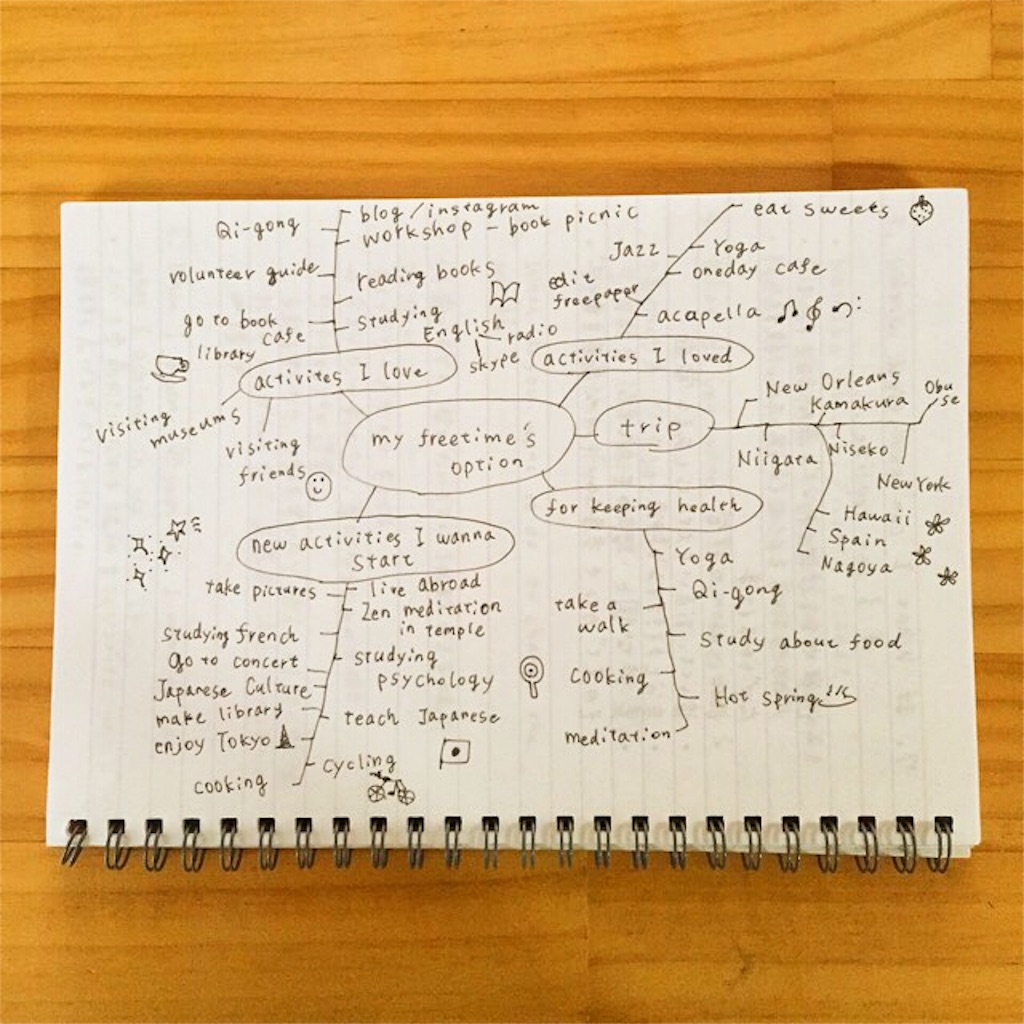 Qi-gong
blog/instagram
workshop - book picnic
volunteer guide
reading books
go to book
cafe
library
studying
English
radio
skype
activites I love
visiting
museums
visiting
friends
eat sweets
Jazz
Yoga
oneday cafe
edit
freepaper
acapella
activities I loved
my freetime's
option
trip
New Orleans
Kamakura
Obu
se
Niigata
Niseko
New York
Hawaii
Spain
Nagoya
for keeping health
Yoga
Qi-gong
take a
walk
Study about food
cooking
Hot spring
meditation
new activities I wanna
start
take pictures
live abroad
Zen meditation
in temple
studying french
go to concert
studying
psychology
Japanese Culture
make library
teach Japanese
enjoy Tokyo
cycling
cooking